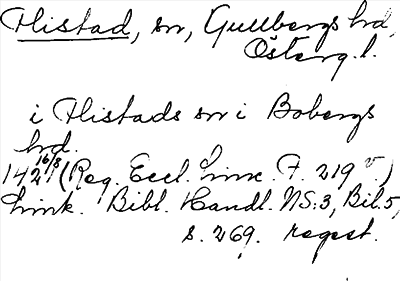 Flistad, sn, Gullbergs hrd,
Österg. l.
i Flistads sn i Bobergs
hrd.
1421 16/8 (Reg. Eccl. Linc. F. 219 v.)
Link. Bibl. Handl. NS:3, Bil. 5,
s. 269. regest.